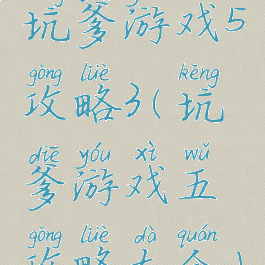 坑爹游戏5
gōng lüè kēng
攻略3(坑
diē yóu xì wǔ
爹游戏五
gōng lüè dà quán
攻略大全)